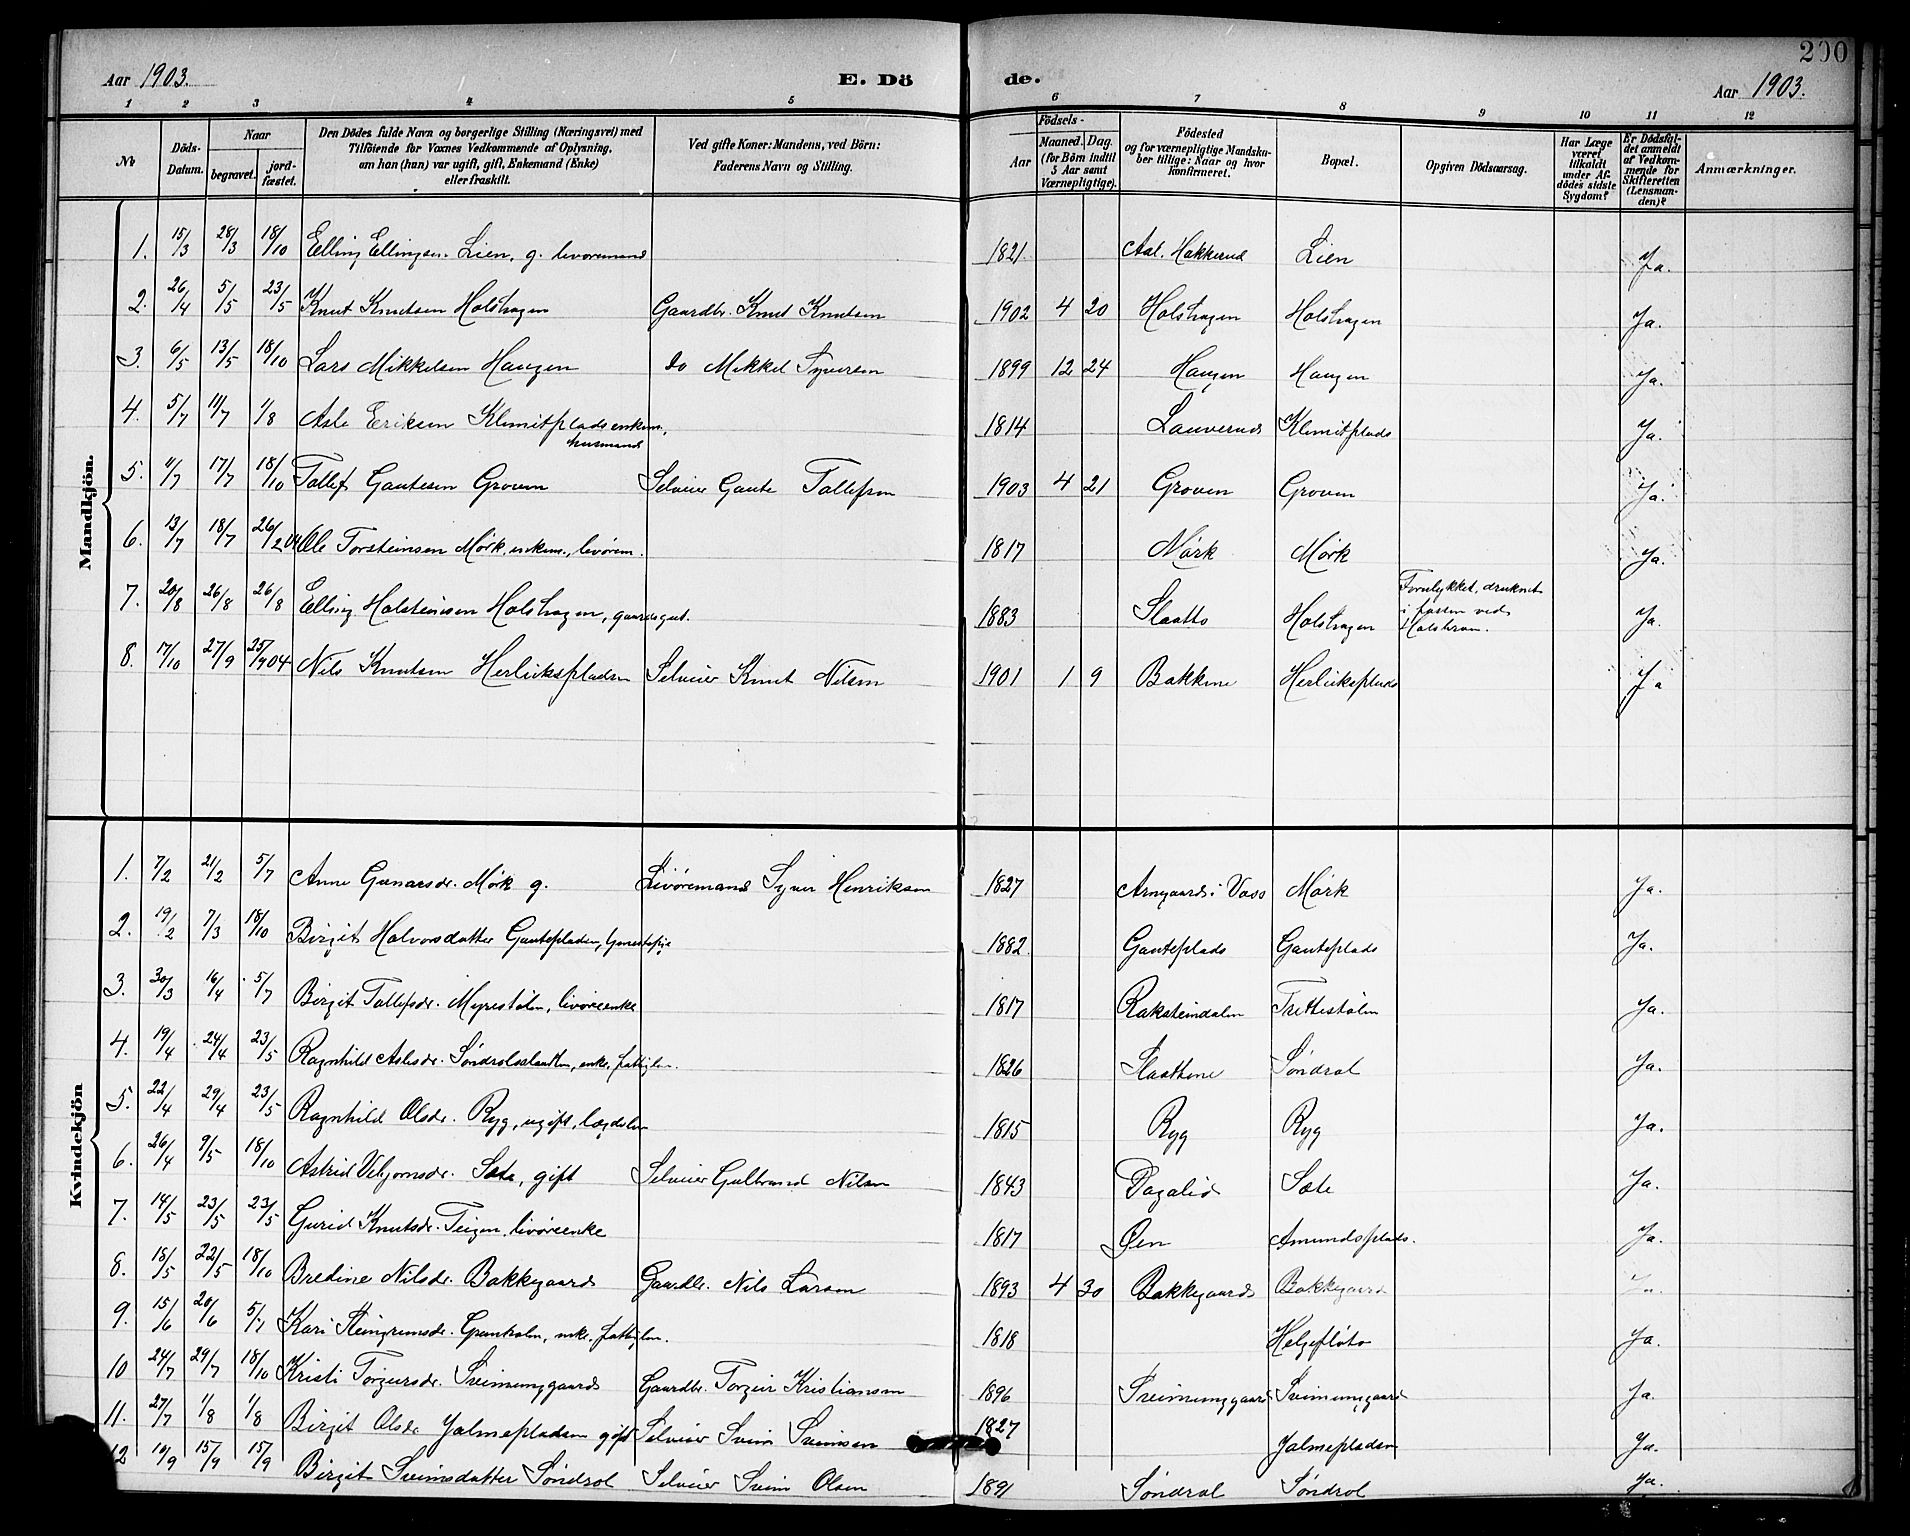 200
Aar 1903. E. Dö de. Aar 1903.
1 2 3 4 5 6 7 8 9 10 11 12
No
Döds-Datum.
Naar
begravet.
jord-fæstet.
Den Dödes fulde Navn og borgerlige Stilling (Næringsvei) med
Tilföiende for Voxnes Vedkommende af Oplysning,
om han (hun) var ugift, gift, Enkemand (Enke)
eller fraskilt.
Ved gifte Koner: Mandens, ved Börn:
Faderens Navn og Stilling.
Födsels-
Aar
Maaned. Dag.
(for Börn indtil
5 Aar samt
Værnepligtige).
Födested
og for værnepligtige Mandska-
ber tillige: Naar og hvor
konfirmeret.
Bopæl.
Opgiven Dödsaarsag.
Har Læge
været
tilkaldt
under Af-
dödes sidste
Sygdom?
Er Dödsfal-
det anmeldt
af Vedkom-
mende for
Skifteretten
(Lensman-
den)?
Anmærkninger.
Mandkjön.
1. 15/3 28/3 18/10 Elling Ellingsen Lien, g. levøremand 1821. Aal. Hakkerud Lien Ja.
2. 26/4 5/5 23/5 Knut Knutsen Holshagen Gaardbr. Knut Knutsen 1902 4 20 Holshagen Holshagen Ja.
3. 6/5 13/5 18/10 Lars Mikkelsen Haugen do Mikkel Syversen 1899 12 24 Haugen Haugen Ja.
4. 5/7 11/7 1/8 Asle Eriksen Klemitplads enkem., husmand 1814 Lauverud Klemitplads Ja.
5. 11/7 17/7 18/10 Tollef Gautesen Groven Selveier Gaute Tollefsen 1903 4 21 Groven Groven Ja.
6. 13/7 18/7 26/2 04 Ole Torsteinsen Mørk, enkem., levørem. 1817 Mørk Mørk Ja.
7. 20/8 26/8 26/8 Elling Holsteinsen Holshagen, gaardsgut. 1883 Slaatto Holshagen Forulykket, druknet
i fossen ved
Holsbroen. Ja.
8. 17/10 27/9 25/7 04 Nils Knutsen Herliekspladsen Selveier Knut Nilsen 1901 1 9 Bakkene Herlieksplads Ja
Kvindekjön
1. 7/2 21/2 5/7 Anne Gunarsdr. Mørk g. Livøremand Syver Henriksen 1827 Arnegaard i Vass Mørk Ja.
2. 19/2 7/3 18/10 Birgit Halvorsdatter Gautepladsen, tjenestepige 1882. Gauteplads Gauteplads Ja.
3. 30/3 16/4 5/7 Birgit Tollefsdr. Myrestølen, livøreenke 1817 Raksteindalen Trettestølen Ja.
4. 19/4 24/4 23/5 Ragnhild Aslesdr. Søndrolsslaatten, enke, fattiglem. 1826 Slaattene Søndrol Ja.
5. 22/4 29/4 23/5 Ragnhild Olsdr. Ryg, ugift, lægdslem 1815 Ryg Ryg Ja.
6. 26/4 9/5 18/10 Astrid Vebjørnsdr. Sæte, gift Selveier Gulbrand Nilsen 1843 Dagalid Sæte Ja.
7. 14/5 23/5 23/5 Gurid Knutsdr. Teigen, livøreenke 1817 Øen Amundsplads. Ja.
8. 15/5 22/5 18/10 Bredine Nilsdr. Bakkegaard Gaardbr. Nils Larsen 1893 4 30 Bakkegaard Bakkegaard Ja.
9. 15/6 20/6 5/7 Kari Steingrimsdr. Grønholm, enke, fattiglem. 1818 Helgefløto Ja.
10 24/7 29/7 18/10 Kristi Torgeirsdr. Sveinunggaard Gaardbr. Torgeir Kristiansen 1896 Sveinunggaard Sveinunggaard Ja.
11. 27/7 1/8 1/8 Birgit Olsdr Jalmepladsen gift Selveier Svein Sveinsen 1827 Jalmepladsen Ja.
12 10/9 15/9 15/9 Birgit Sveinsdatter Søndrol Selveier Svein Olsen 1891 Søndrol Søndrol Ja.